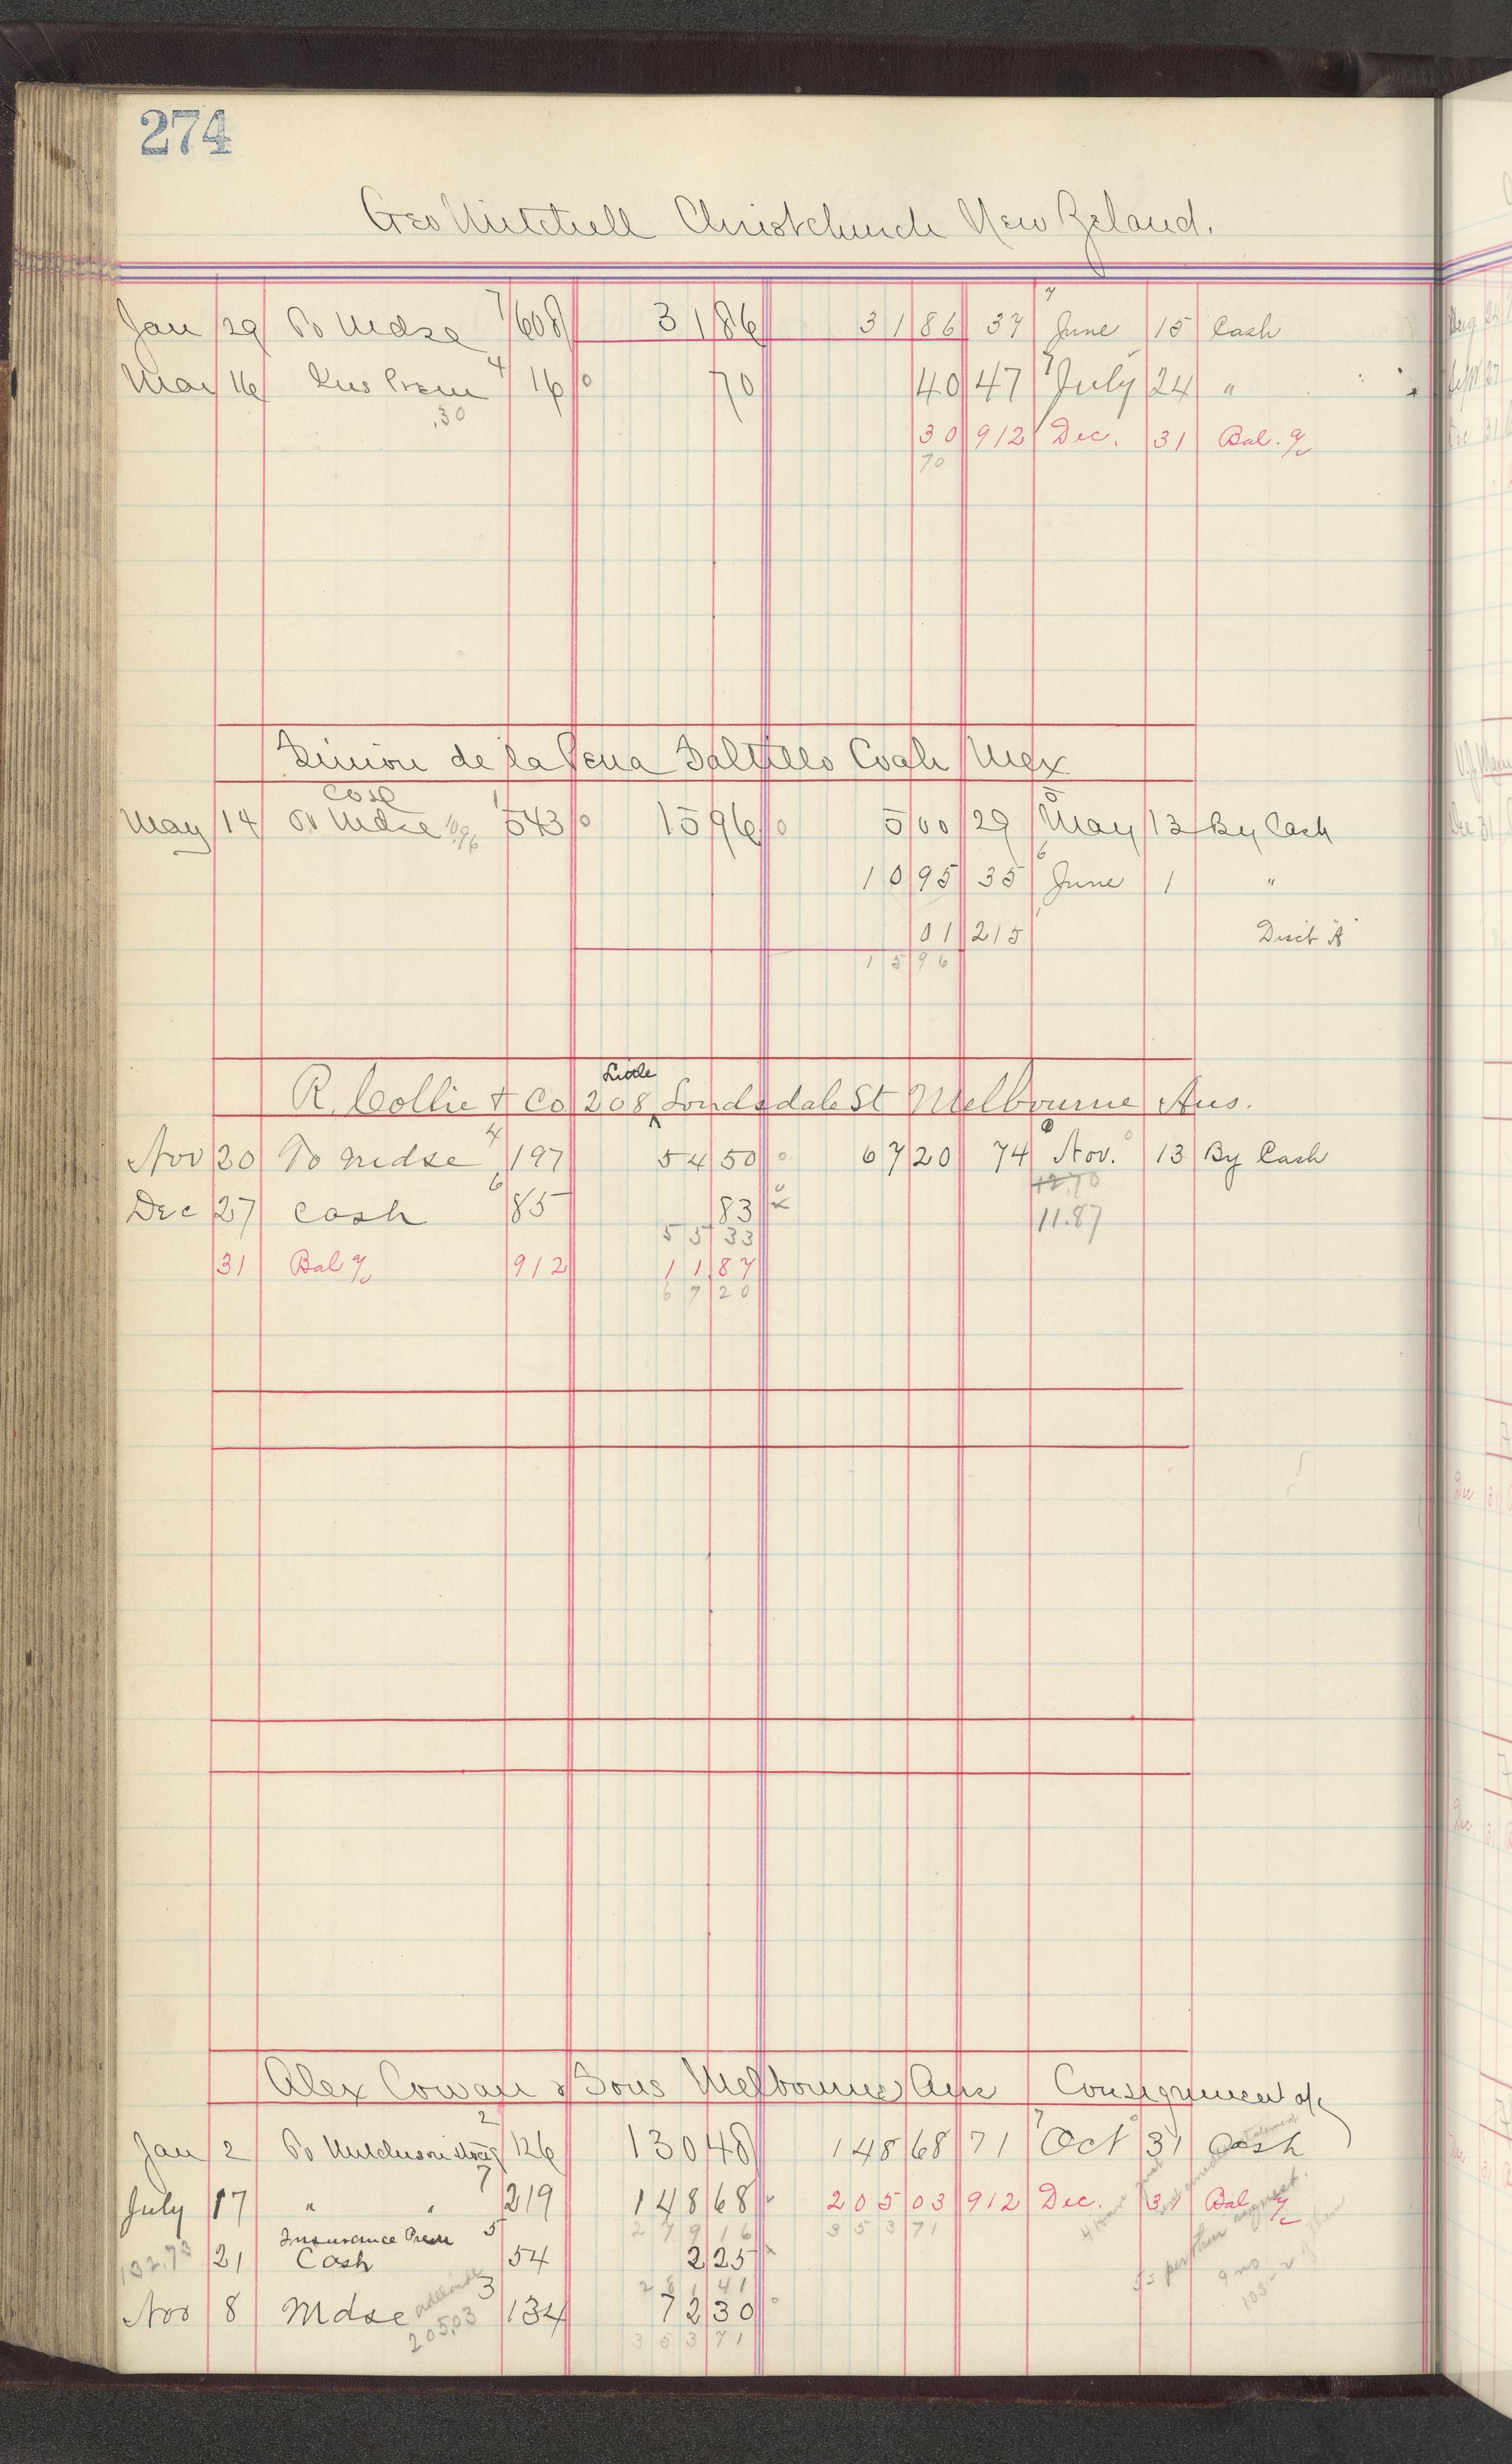 274
Geo Mitchell Christchurch New Zeland.
Jan 29 To Mdse 7 608 31 86 31 86 37 7 June 15 Cash
Mar 16 Ins Prem 4 16 0 70 40 47 7 July 24 "
.30
30 912 Dec. 31 Bal. %
70
Simion de la Pena Saltillo Coah Mex
Cose
May 14 To Mdse 10.96 1 543 0 15 96 0 5 00 29 5 May 13 By Cash
10 95 35 6 June 1 "
01 215 1 Disct "A"
15 96
Little
R. Collie & Co 208 ^ Londsdale St Melbourne Aus.
Nov 20 To Mdse 4 197 54 50 0 67 20 74 Nov. 13 By Cash
12.70
Dec 27 Cash 6 85 83 x 11.87
55 33
31 Bal % 912 11.87
67 20
Alex Cowan & Sons Melbourne Aus Consignment a/c
Jan 2 To Mdse 2 126 130 48 148 68 71 7 Oct 31 Cash
July 17 " " 7 219 148 68 205 03 912 Dec. 31 Bal %
279 16 353 71
Insurance Prem 5
132.73 21 Cash 54 2 25 x
281 41
Nov 8 Mdse 3 134 72 30 0
205.03
353 71
per their request.